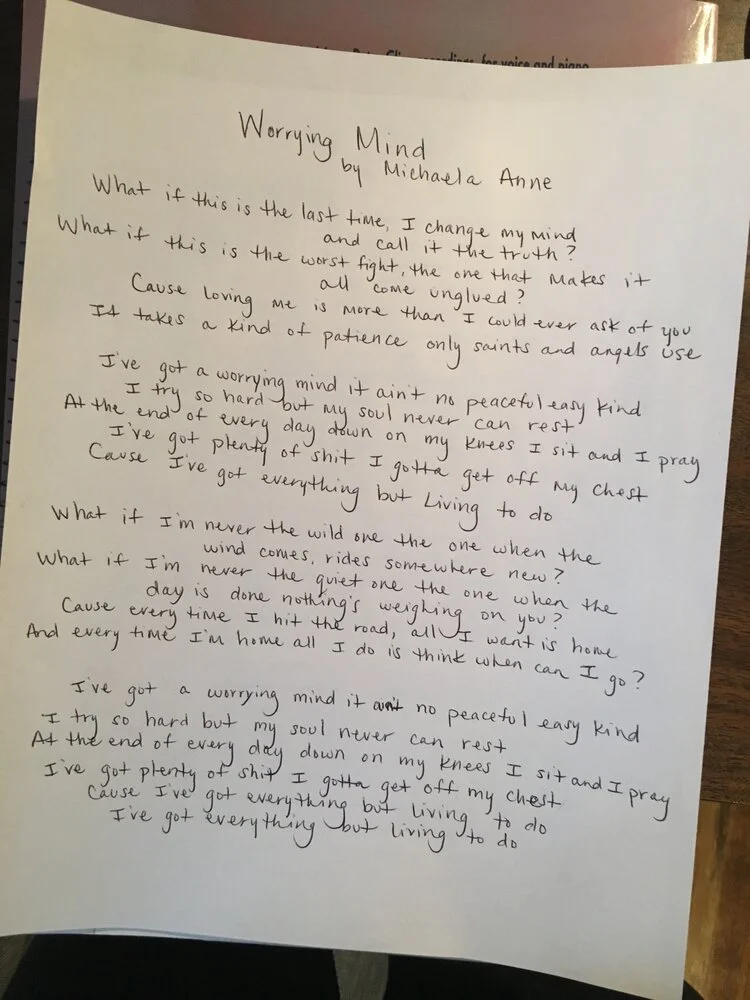 recordings, for voice and piano
Worrying Mind
by Michaela Anne
What if this is the last time, I change my mind
and call it the truth?
What if this is the worst fight, the one that makes it
all come unglued?
Cause loving me is more than I could ever ask of you
It takes a kind of patience only saints and angels use
I've got a worrying mind it ain't no peaceful easy kind
I try so hard but my soul never can rest
At the end of every day down on my knees I sit and I pray
I've got plenty of shit I gotta get off my chest
Cause I've got everything but Living to do
What if I'm never the wild one the one when the
wind comes, rides somewhere new?
What if I'm never the quiet one the one when the
day is done nothing's weighing on you?
Cause every time I hit the road, all I want is home
And every time I'm home all I do is think when can I go?
I've got a worrying mind it ain't no peaceful easy kind
I try so hard but my soul never can rest
At the end of every day down on my knees I sit and I pray
I've got plenty of shit I gotta get off my chest
Cause I've got everything but living to do
I've got everything but living to do